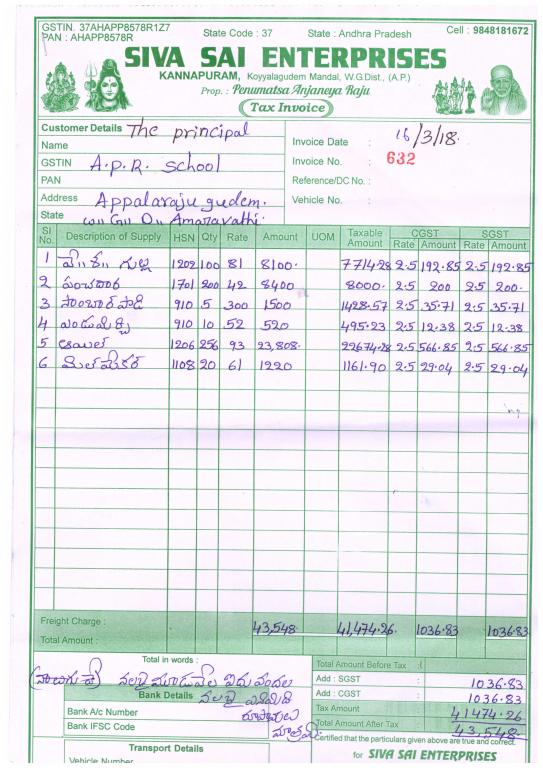 GSTIN. 37AHAPP8578R1Z7
PAN : AHAPP8578R
State Code : 37
State : Andhra Pradesh
Cell : 9848181672
SIVA SAI ENTERPRISES
KANNAPURAM, Koyyalagudem Mandal, W.G.Dist., (A.P.)
Prop. : Penumatsa Anjaneya Raju
Tax Invoice
Customer Details The principal
Name
GSTIN A.P.R. School
PAN
Address Appalarajugudem.
State W.G.D. Amaravathi.
Invoice Date : 16/3/18.
Invoice No. : 632
Reference/DC No. :
Vehicle No. :
Sl No. Description of Supply HSN Qty Rate Amount UOM Taxable Amount CGST Rate Amount SGST Rate Amount
1 గుళ్ళ 1202 100 81 8100. 7714.28 2.5 192.85 2.5 192.85
2 పంచదార 1701 200 42 8400 8000. 2.5 200 2.5 200.
3 సాంబార్ పొడి 910 5 300 1500 1428.57 2.5 35.71 2.5 35.71
4 ఎండుమిర్చి 910 10 .52 520 495.23 2.5 12.38 2.5 12.38
5 ఆయిల్ 1206 256 93 23,808. 22674.28 2.5 566.85 2.5 566.85
6 మిల్ మేకర్ 1108 20 61 1220 1161.90 2.5 29.04 2.5 29.04
Freight Charge :
43,548. 41,474.26. 1036.83 1036.83
Total Amount :
Total in words :
నలభై మూడువేల ఐదువందల
నలభై ఎనిమిది
రూపాయలు
మాత్రమే.
Bank Details
Bank A/c Number
Bank IFSC Code
Transport Details
Vehicle Number
Total Amount Before Tax :
Add : SGST 1036.83
Add : CGST 1036.83
Tax Amount 41474.26
Total Amount After Tax 43,548.
Certified that the particulars given above are true and correct.
for SIVA SAI ENTERPRISES